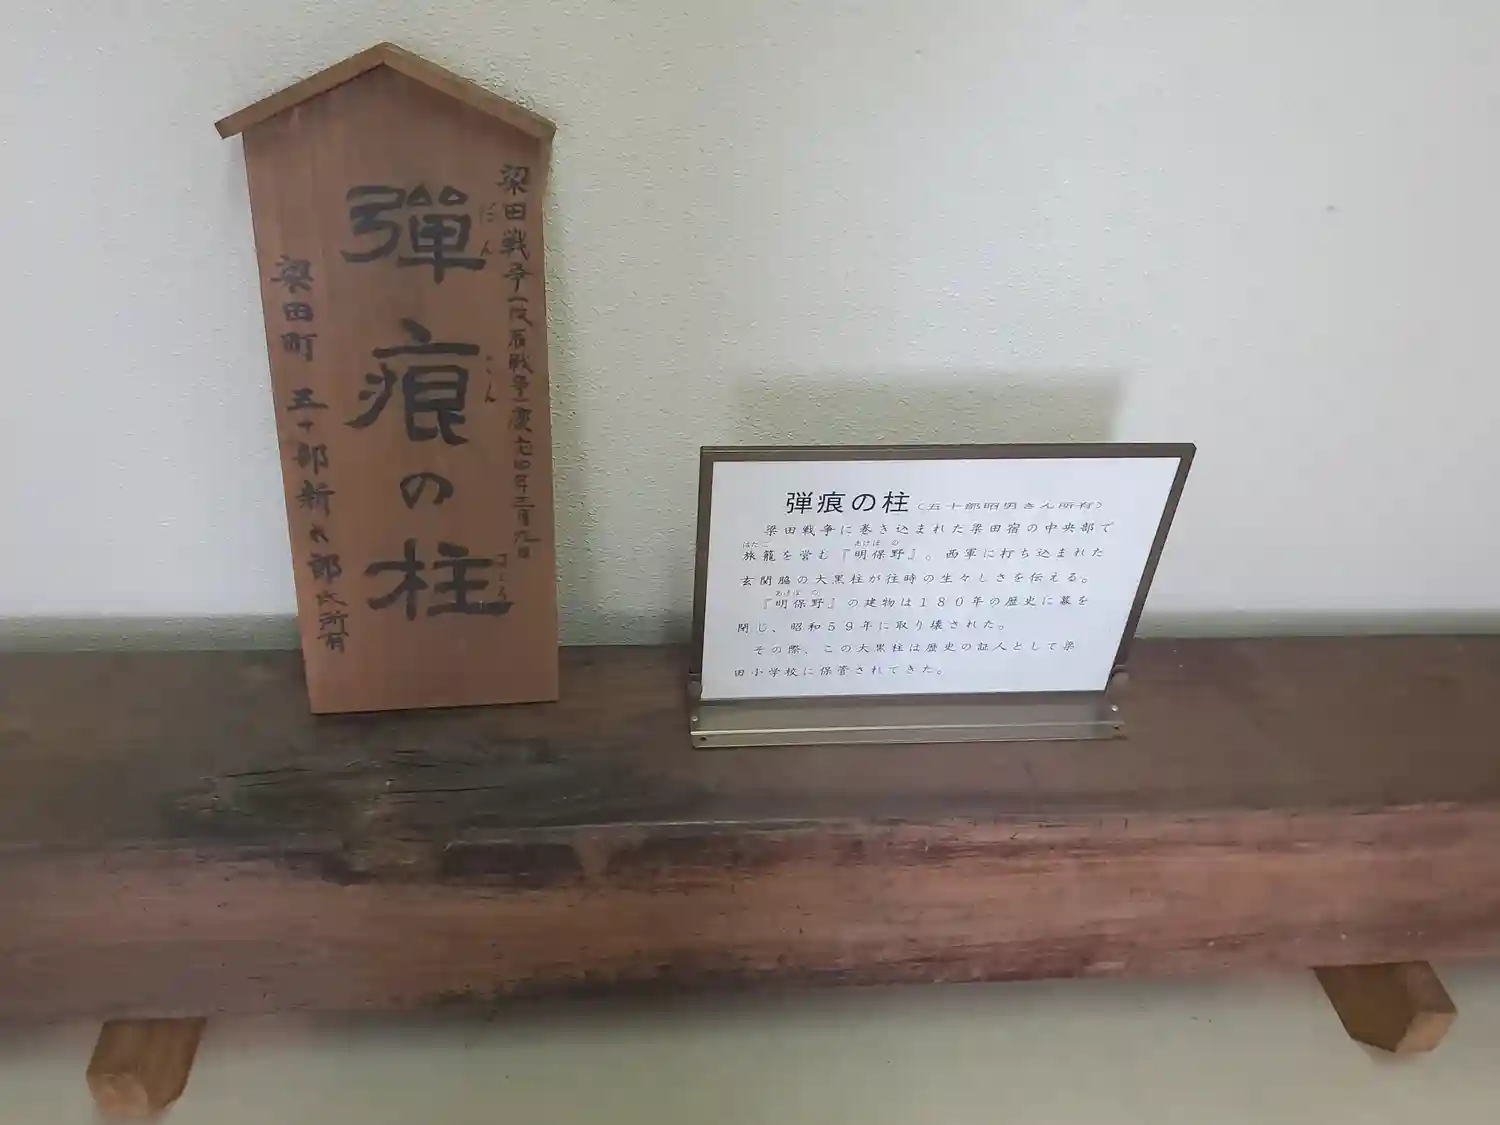 梁田戦争(戊辰戦争)慶応四年三月九日
彈痕の柱
だん こん はしら
梁田町 五十部新九郎氏所有
弾痕の柱(五十部昭男さん所有)
梁田戦争に巻き込まれた梁田宿の中央部で
はたご あけぼの
旅籠を営む『明保野』。西軍に打ち込まれた
玄関脇の大黒柱が往時の生々しさを伝える。
あけぼの
『明保野』の建物は180年の歴史に幕を
閉じ、昭和59年に取り壊された。
その際、この大黒柱は歴史の証人として梁
田小学校に保管されてきた。